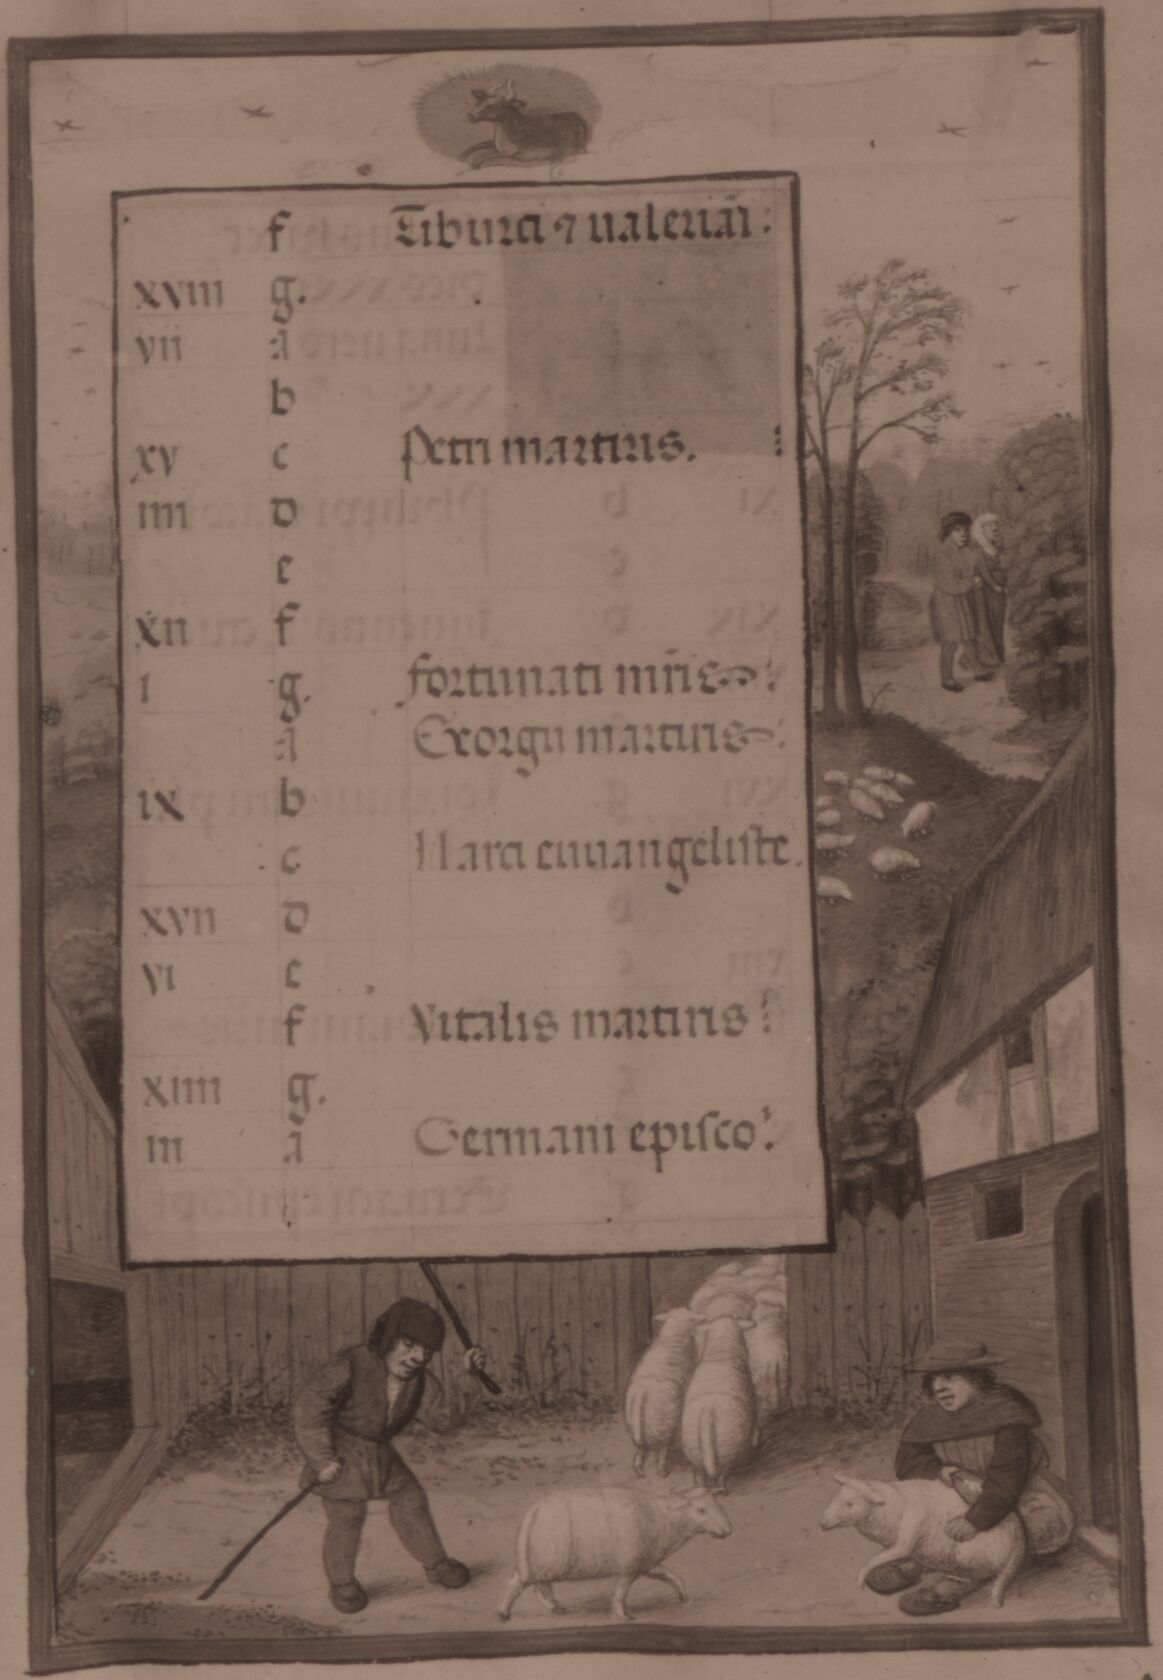 f Tiburci ⁊ ualeriāi:
xviii g.
vii A
b
xv c Petri martiris.
iiii d
e
xii f
i g. fortunati mr̄is
A Georgii martiris
ix b
c Marci euuangeliste.
xvii d
vi e
f Vitalis martiris
xiiii g.
iii A Germani episco